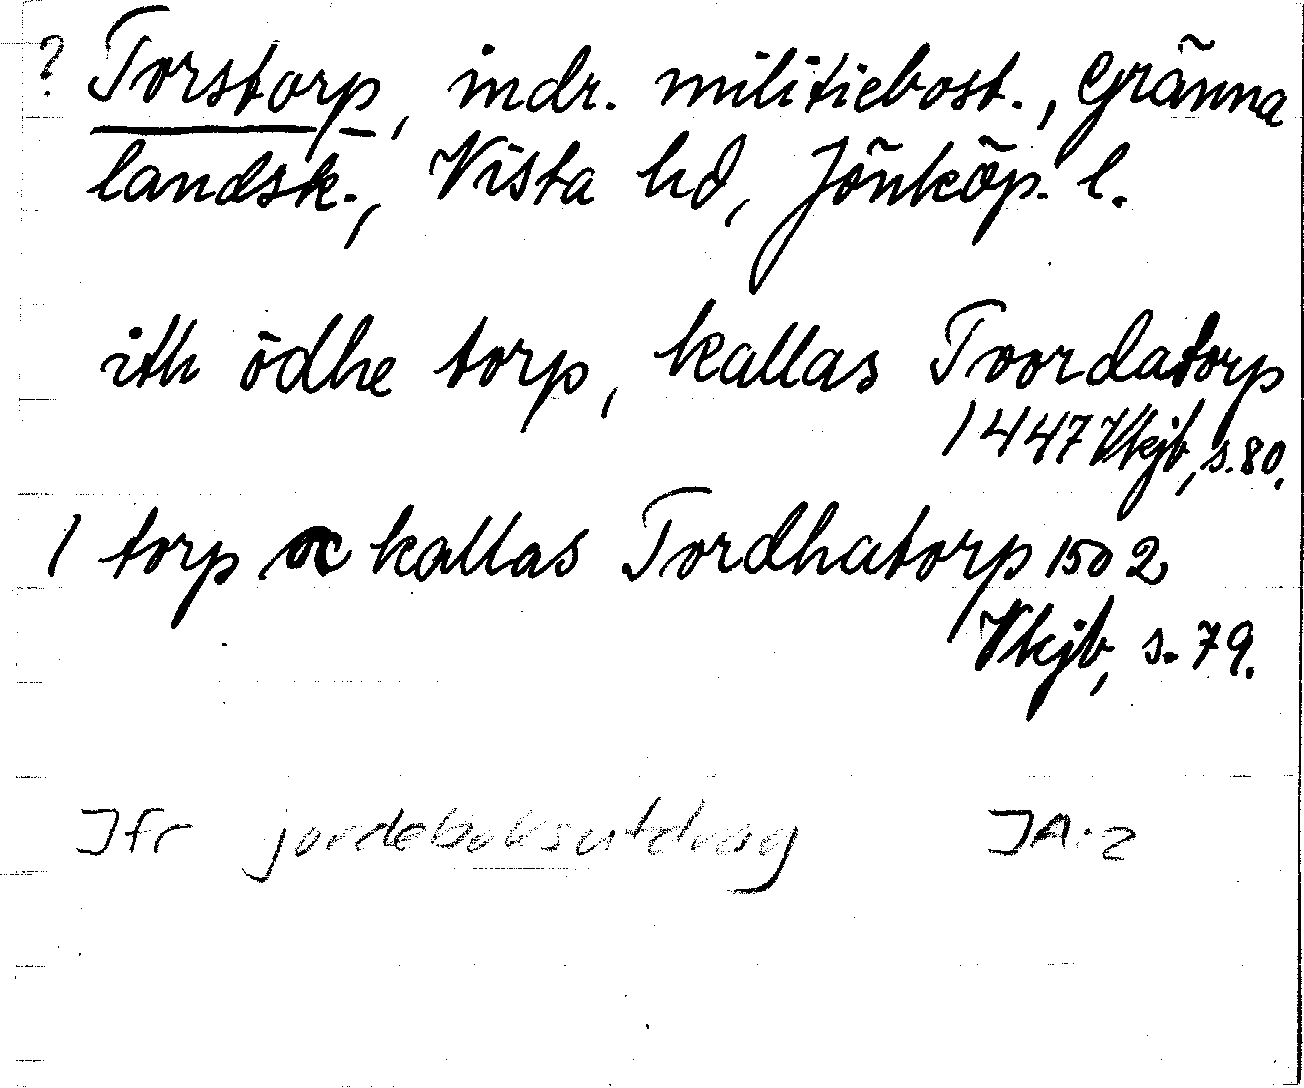 ? Torstorp, indr. militiebost., Gränna
landsk., Vista hd, Jönköp. l.
ith ödhe torp, kallas Toordatorp
1447 Vkjb, s. 80.
1 torp kallas Tordhatorp 1502
Vkjb, s. 79.
Jfr jordeboksutdrag JA:2